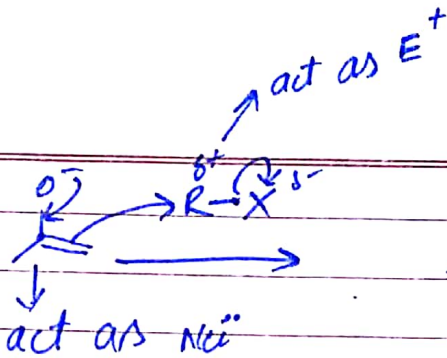 act as E⁺
δ+ δ-
O⁻ R-X
act as Nü